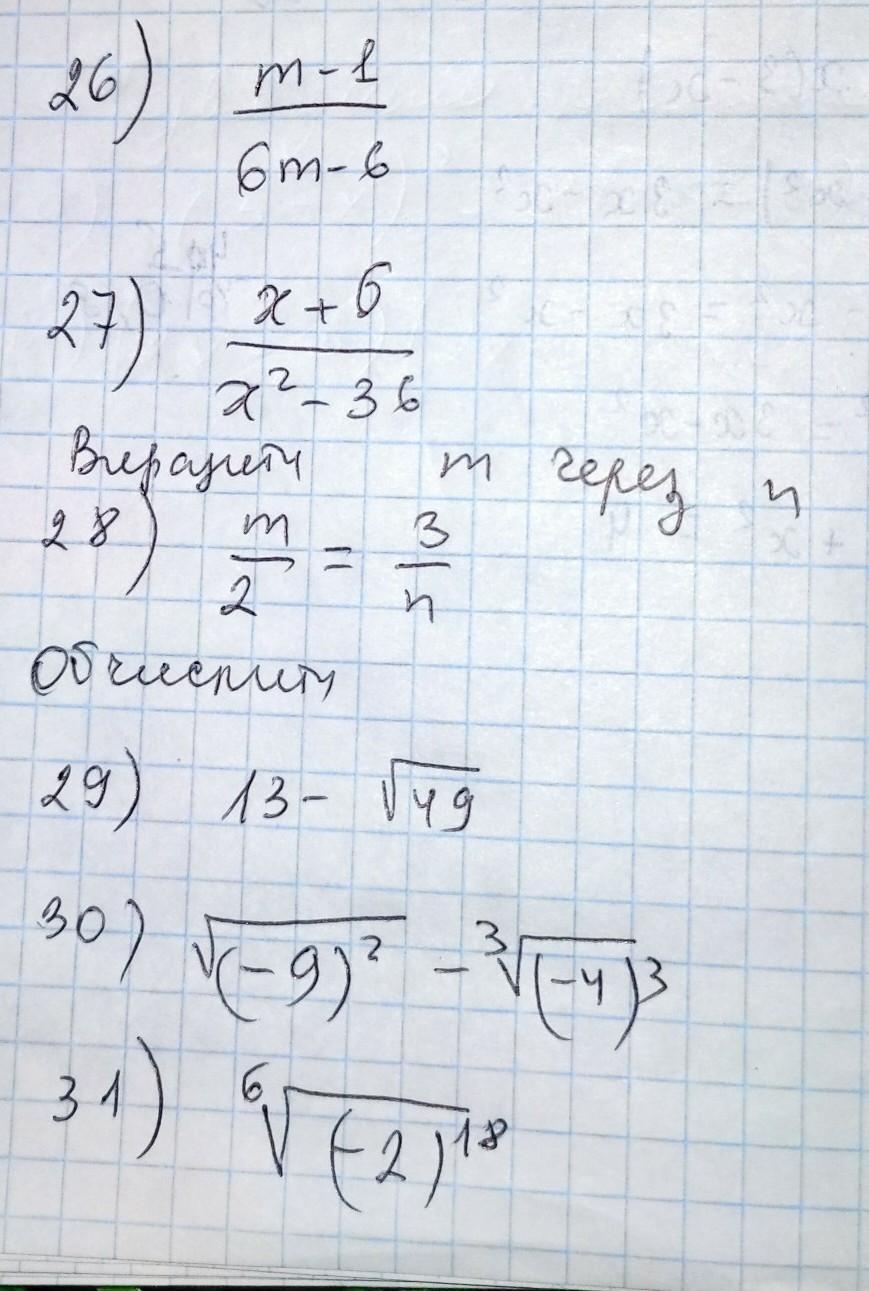 26) m-1 / 6m-6
27) x+6 / x²-36
Виразити m через n
28) m/2 = 3/n
Обчислити
29) 13-√49
30) √(-9)² - ³√(-4)³
31) ⁶√(-2)¹⁸